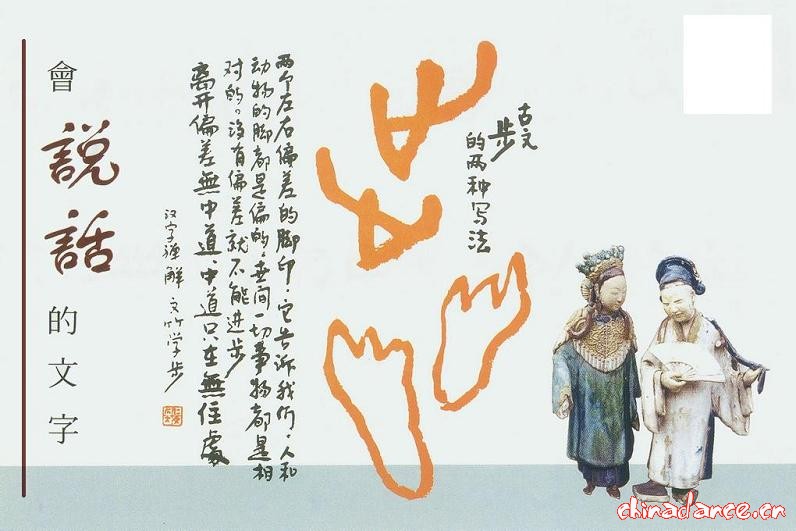 會說話的文字
古文
步
的两种写法
两个左右偏差的脚印。它告诉我们，人和
动物的脚都是偏的。世间一切事物都是相
对的。没有偏差就不能进步
离开偏差無中道。中道只在無住處
汉字 解 文竹学步
chinadance.cn